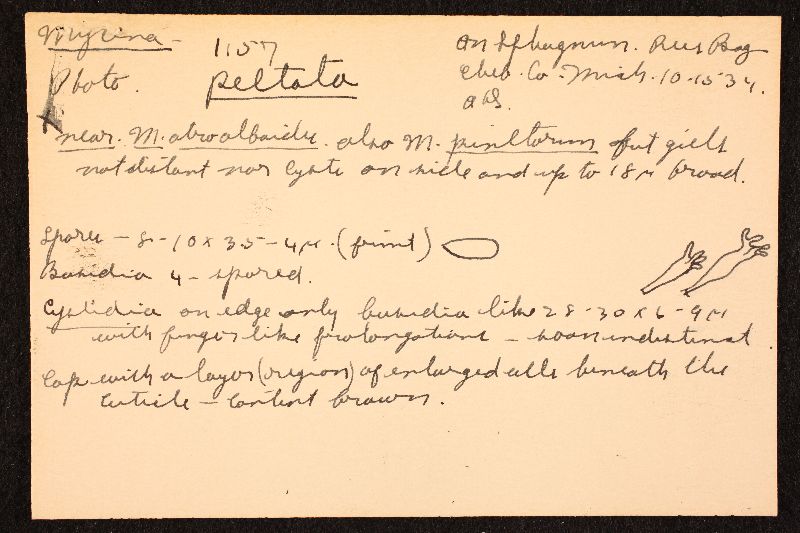 Mycena - 1157 On Sphagnum. Reese Bog
Photo. peltata Cheb. Co. Mich. 10-15-34.
AHS.
near M. atroalboides. also M. pinetorum but gills
not distant nor cysts on side and up to 18µ broad.
Spores - 8-10 x 3.5-4µ. (print)
Basidia 4-spored.
Cystidia on edge only basidia like 28-30 x 6-9µ
with finger like prolongations - soon indistinct.
Cap with a layer (region) of enlarged cells beneath the
cuticle - content brown.